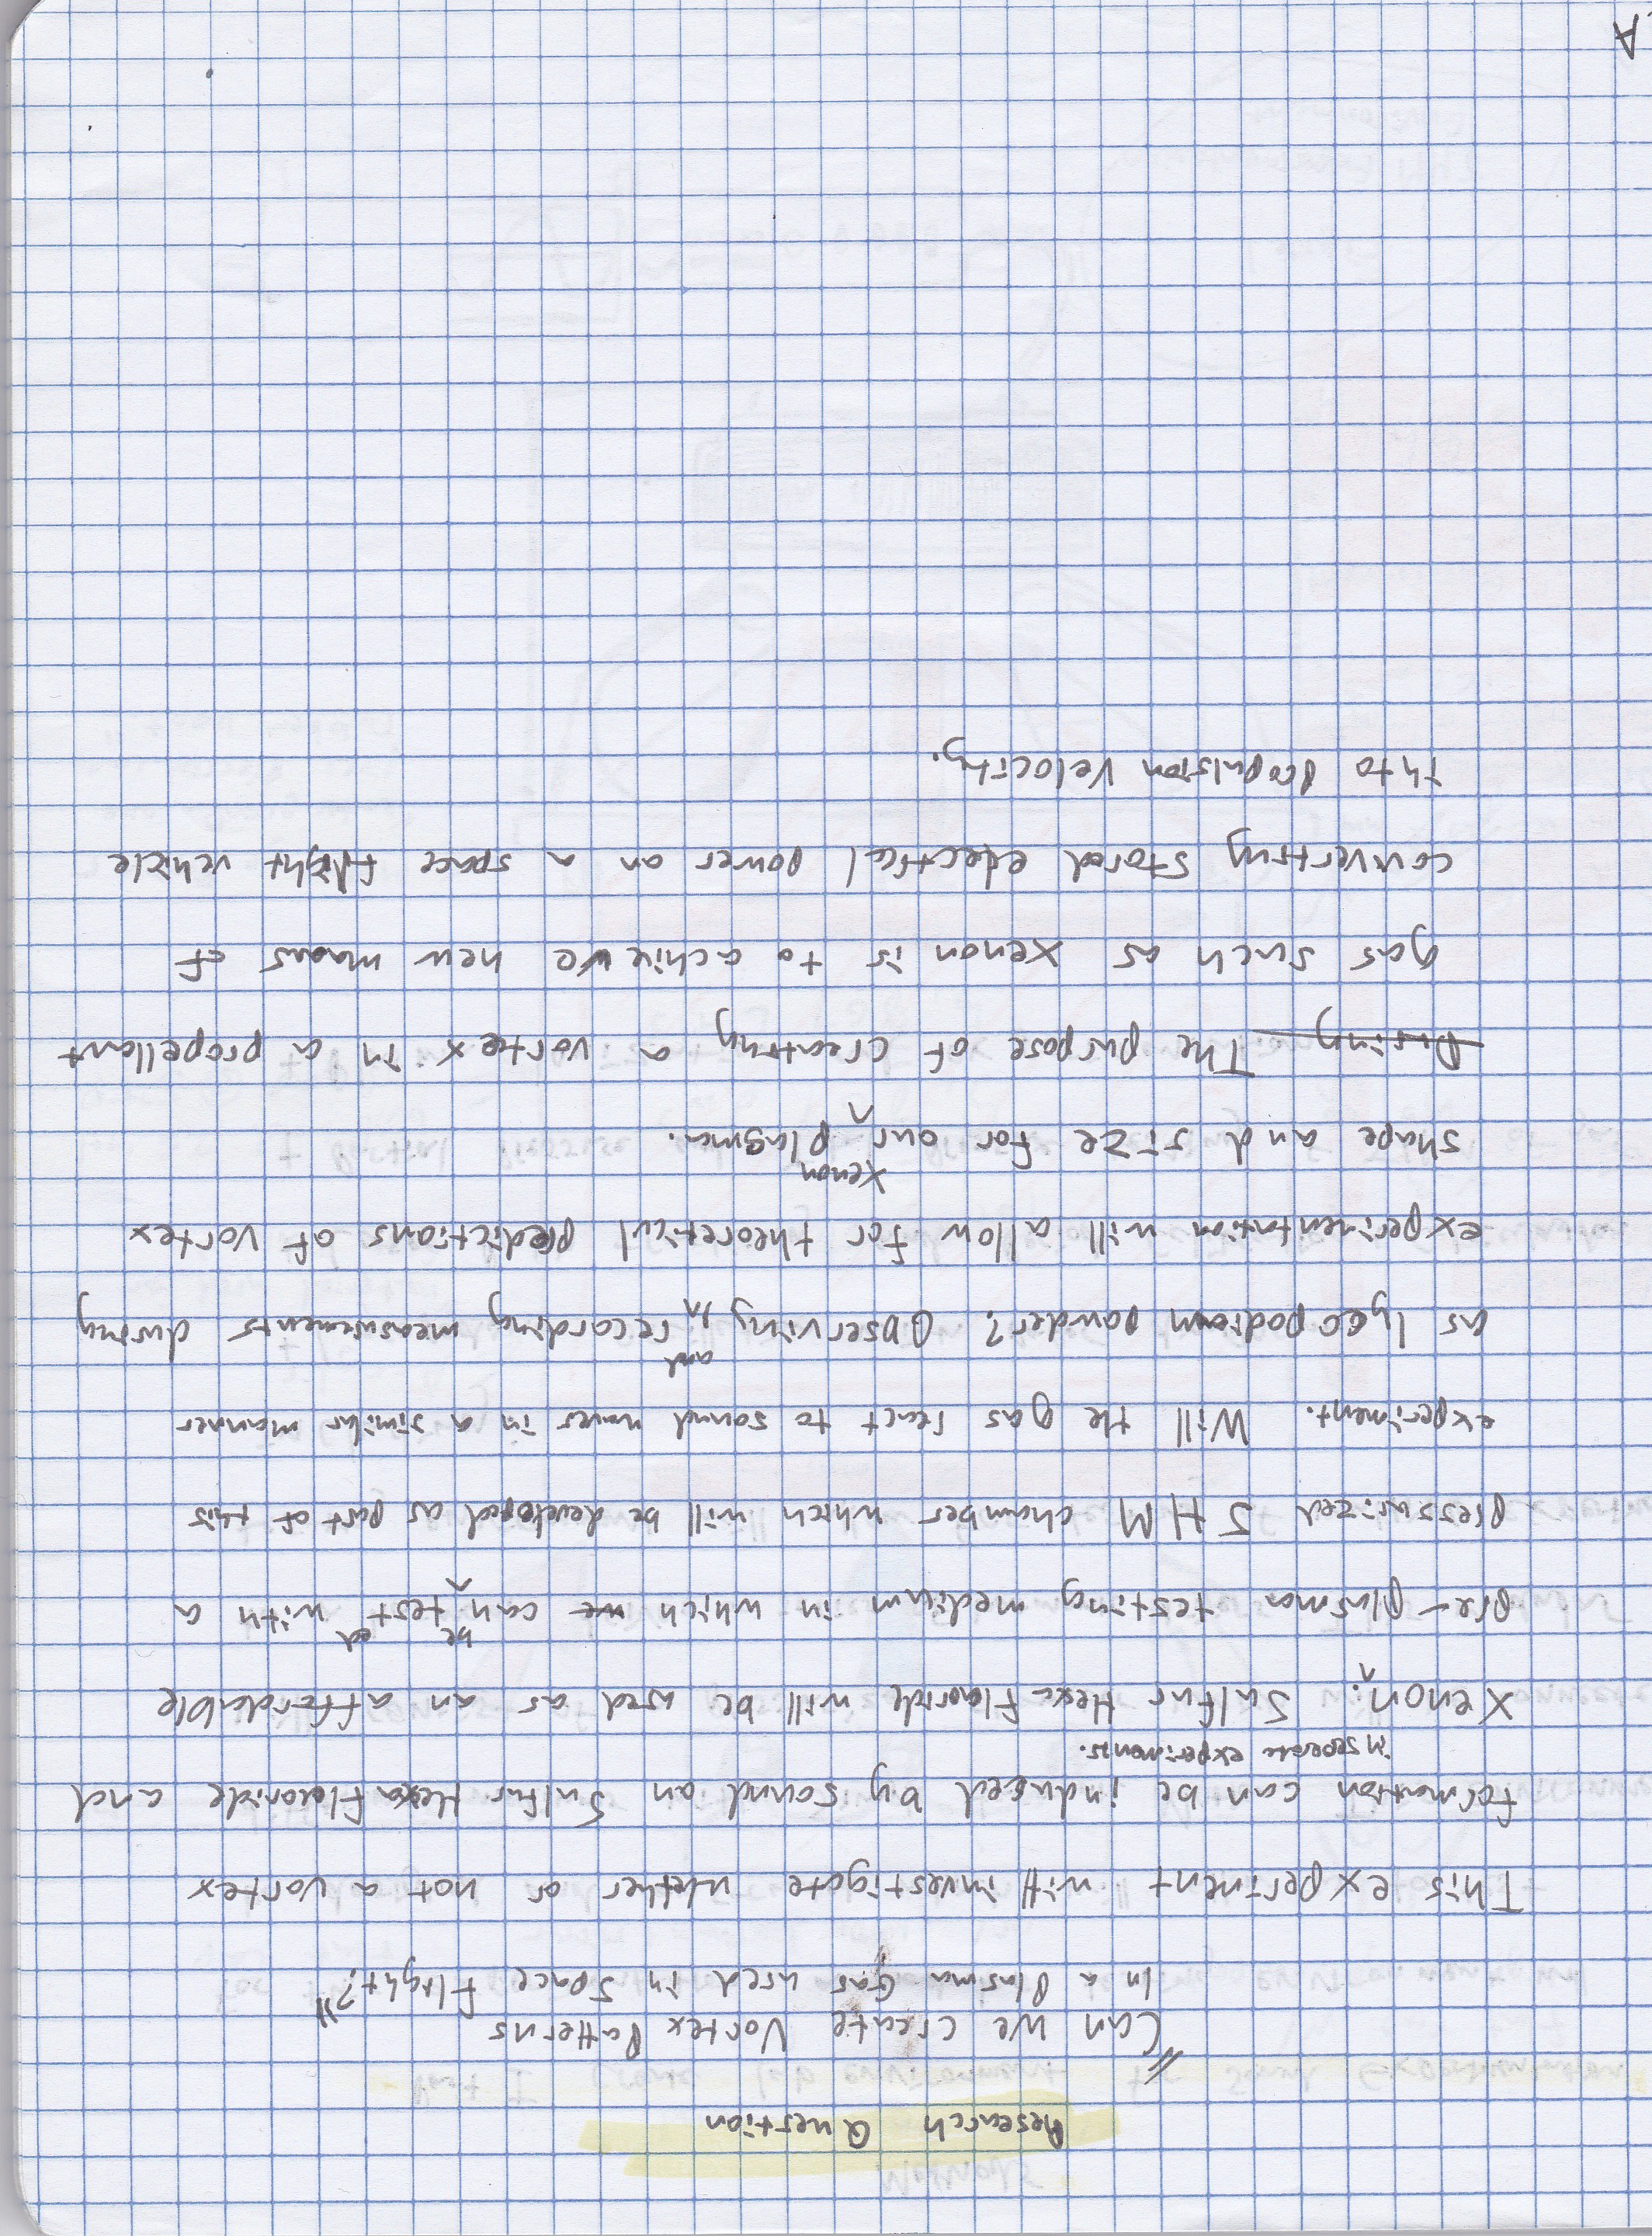 Research Question
"Can we create Vortex Patterns
In a Plasma Gas used in Space Flight?"
This experiment will investigate whether or not a vortex
formation can be induced by sound on Sulfur Hexa Fluoride and
in seperate experiments.
Xenon. Sulfur Hexa Fluoride will be used as an affordable
pre-plasma testing medium in which we can be tested with a
pressurized SHM chamber which will be developed as part of this
experiment. Will the gas react to sound waves in a similar manner
as lycopodium powder? Observing and recording measurements during
experimentation will allow for theoretical predictions of vortex
shape and size for our Xenon plasma.
During The purpose of creating a vortex in a propellant
gas such as xenon is to achieve new means of
converting stored electrical power on a space flight vehicle
into propulsion velocity.
A